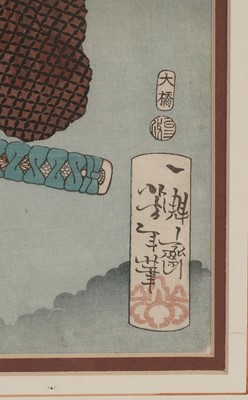 大橋
一魁齋
芳年筆